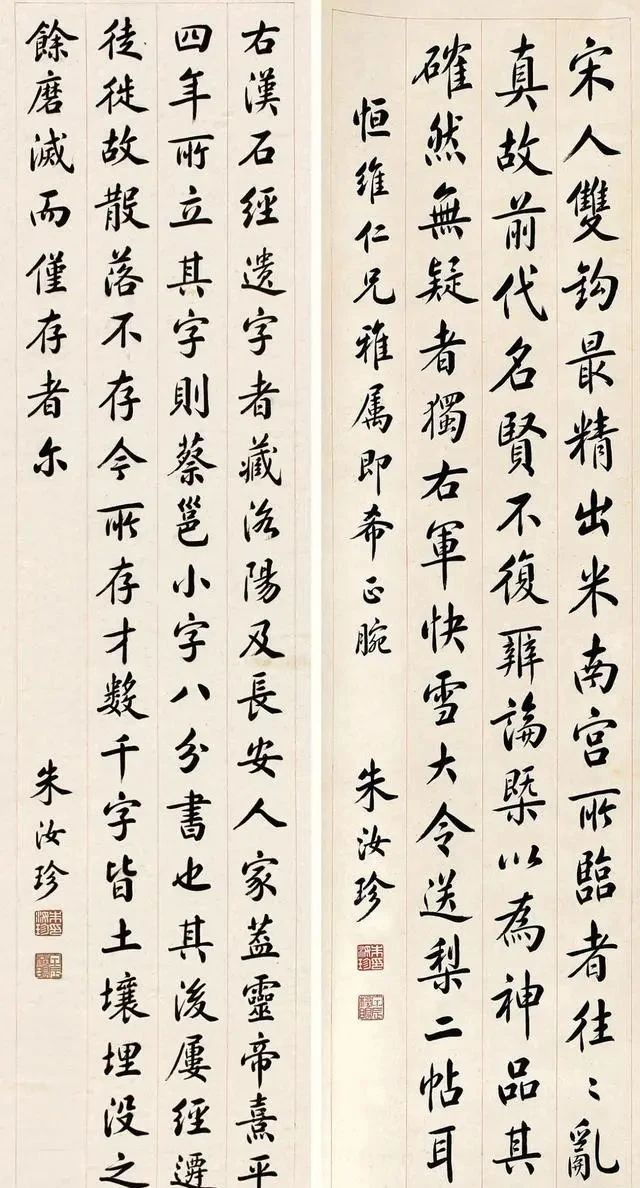 宋人雙鈎最精出米南宫所臨者往〻亂
真故前代名賢不復辨論槩以為神品其
確然無疑者獨右軍快雪大令送梨二帖耳
恒維仁兄雅属即希正腕
朱汝珍
右漢石經遺字者藏洛陽及長安人家葢靈帝熹平
四年所立其字則蔡邕小字八分書也其後屢經遷
徒徙故散落不存今所存才數千字皆土壤埋没之
餘磨滅而僅存者尓
朱汝珍